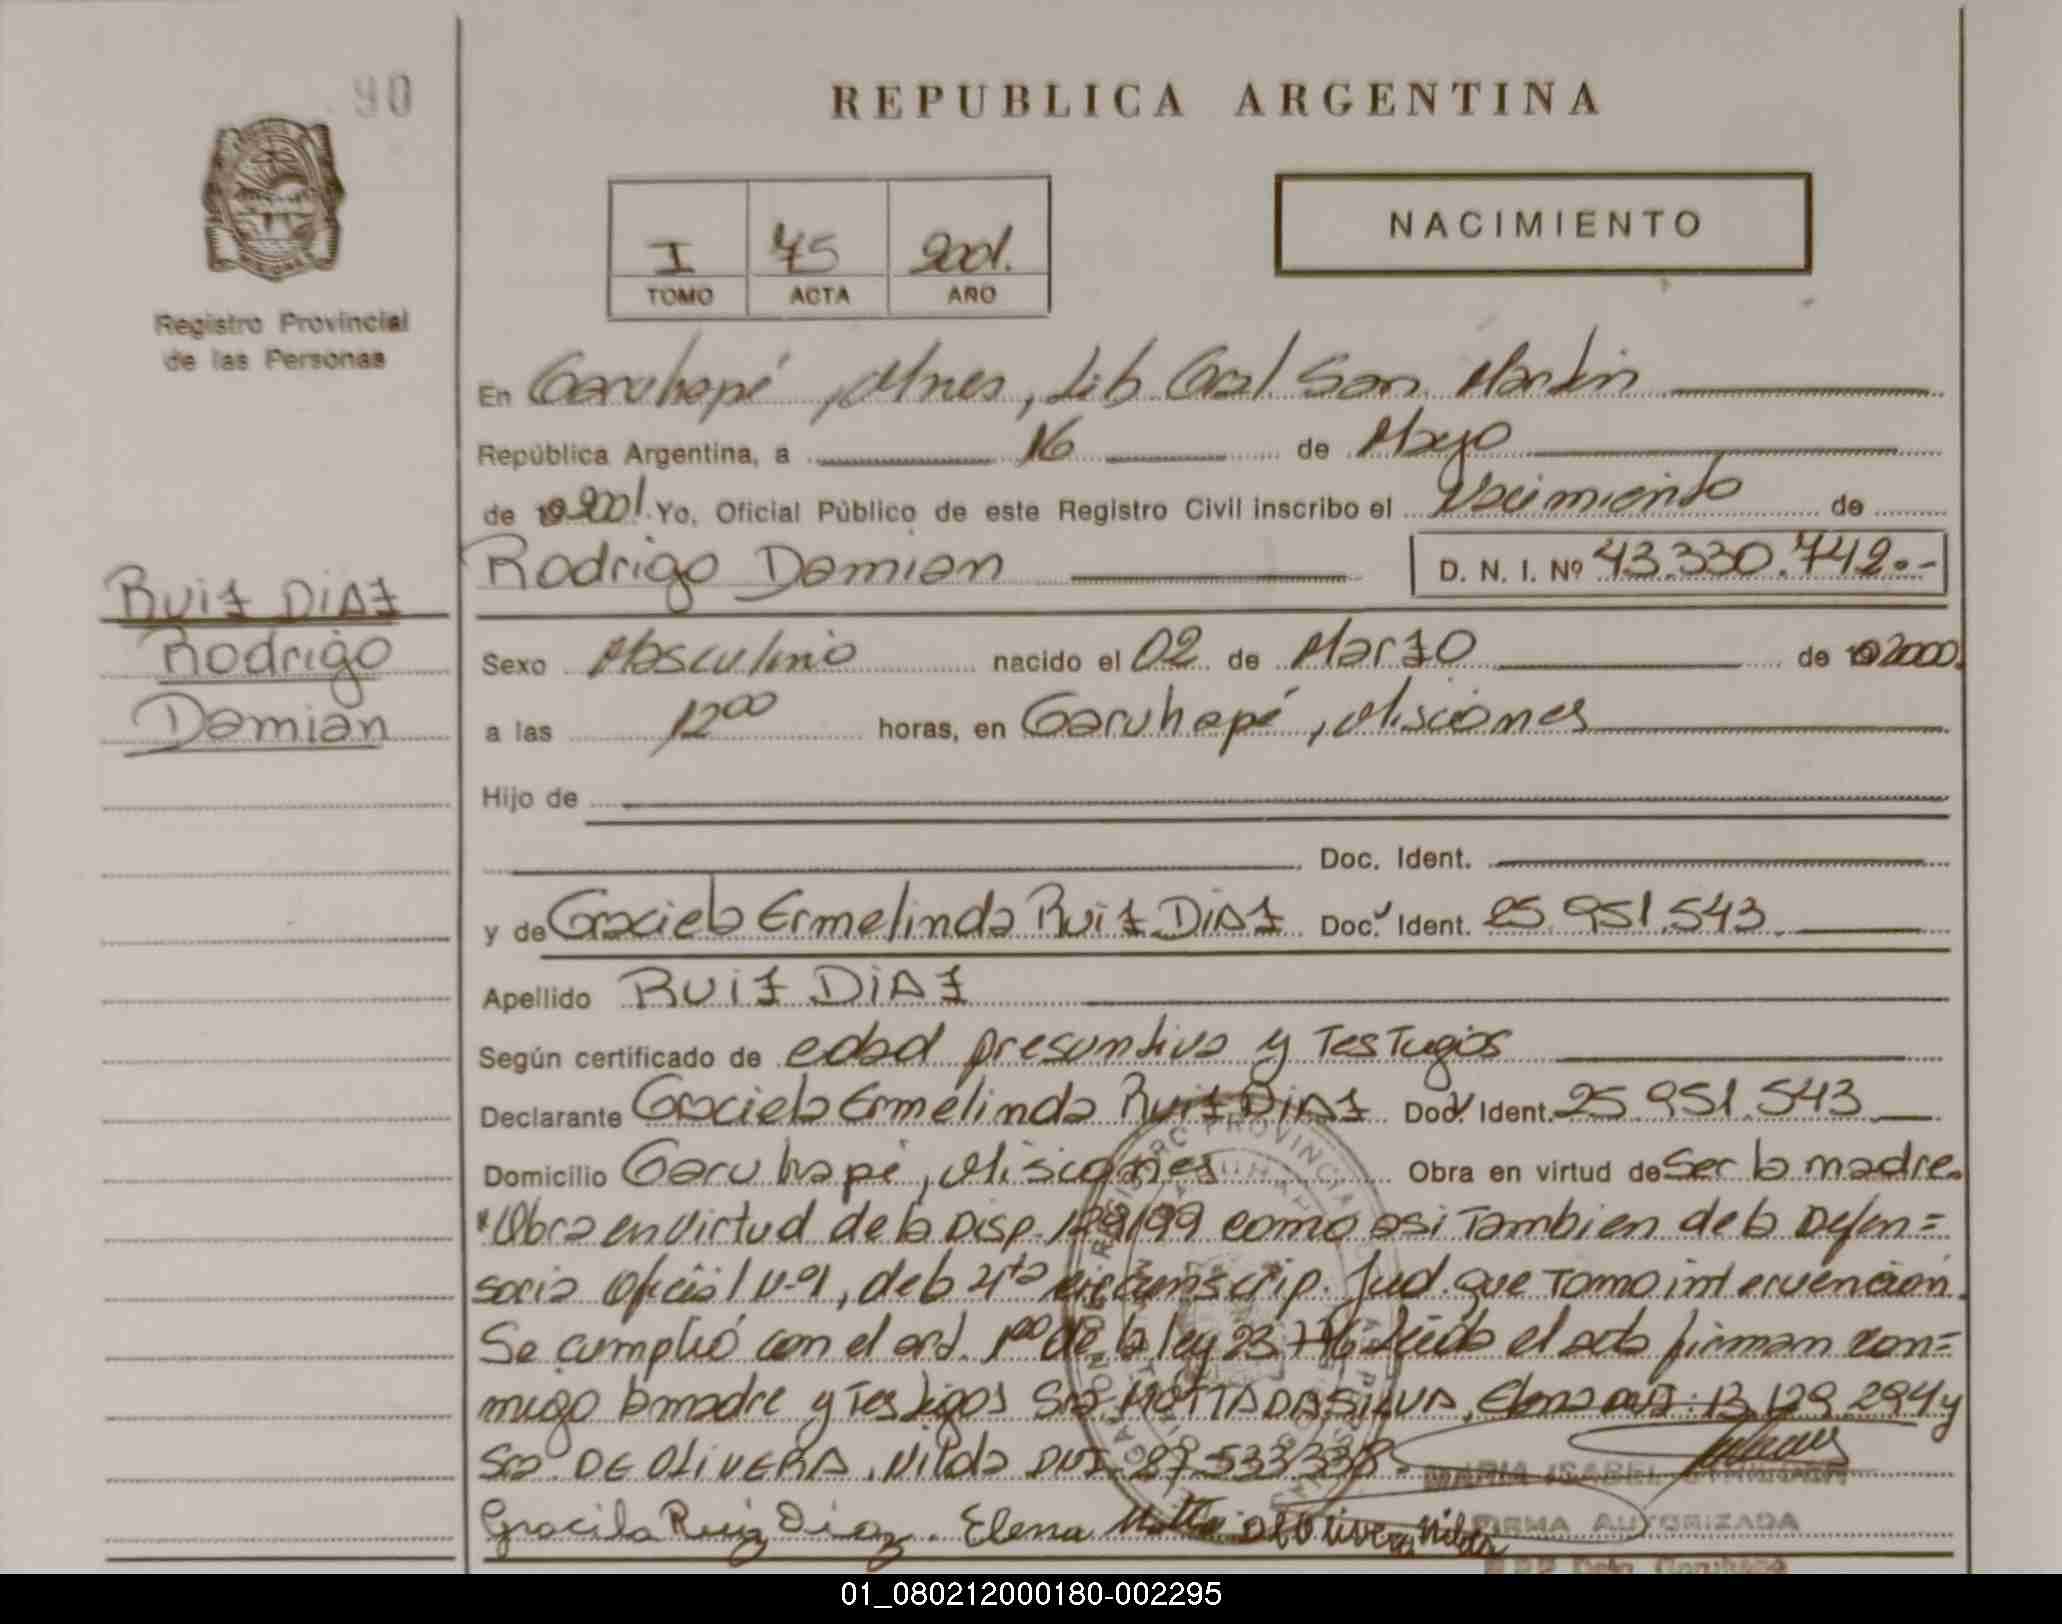 90
REPUBLICA ARGENTINA
NACIMIENTO
I 45 2001.
TOMO ACTA AÑO
Registro Provincial
de las Personas
En Garuhapé, Mnes, Lib. Gral. San Martin
República Argentina, a 16 de Mayo
de 2001. Yo, Oficial Público de este Registro Civil inscribo el Nacimiento de
Rodrigo Damian D. N. I. Nº 43.330.742.-
RUIZ DIAZ
Rodrigo
Damian
Sexo Masculino nacido el 02 de Marzo de 2000.
a las 12 00 horas, en Garuhapé, Misiones
Hijo de
Doc. Ident.
y de Graciela Ermelinda RUIZ DIAZ Doc. Ident. 25.951.543.
Apellido RUIZ DIAZ
Según certificado de edad presuntiva y Testugios
Declarante Graciela Ermelinda RUIZ DIAZ Doc. Ident. 25.951.543
Domicilio Garuhapé, Misiones Obra en virtud de Ser la madre.
Obra en virtud de la Disp. /99 como asi Tambien de la Defen=
soria Oficial Nº1, de la 4ta circunscrip. Jud. que Tomo intervención.
Se cumplió con el art. 1 de la ley 23.776 Leida el acta firman con=
migo la madre y Testigos Sra MOTTA DA SILVA, Elena DNI: 13.129.294 y
Sra. DE OLIVERA, Nilda DNI 27.533.338.
Gracila Ruiz Diaz. Elena Motta De Olivera Nilda
REGISTRO PROVINCIAL
MARIA ISABEL
FIRMA AUTORIZADA
Garuhape
01_080212000180-002295